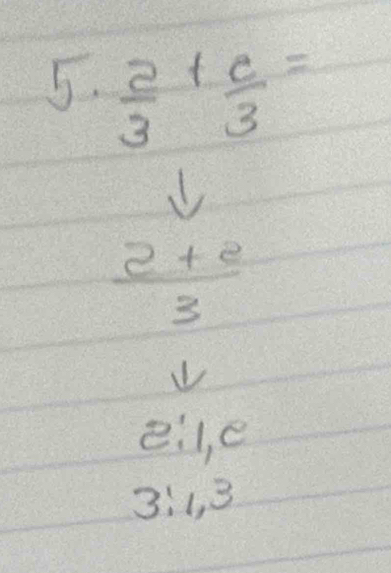 5. 2/3 + 2/3 =
↓
2 + 2 / 3
↓
2: 1, 2
3: 1, 3